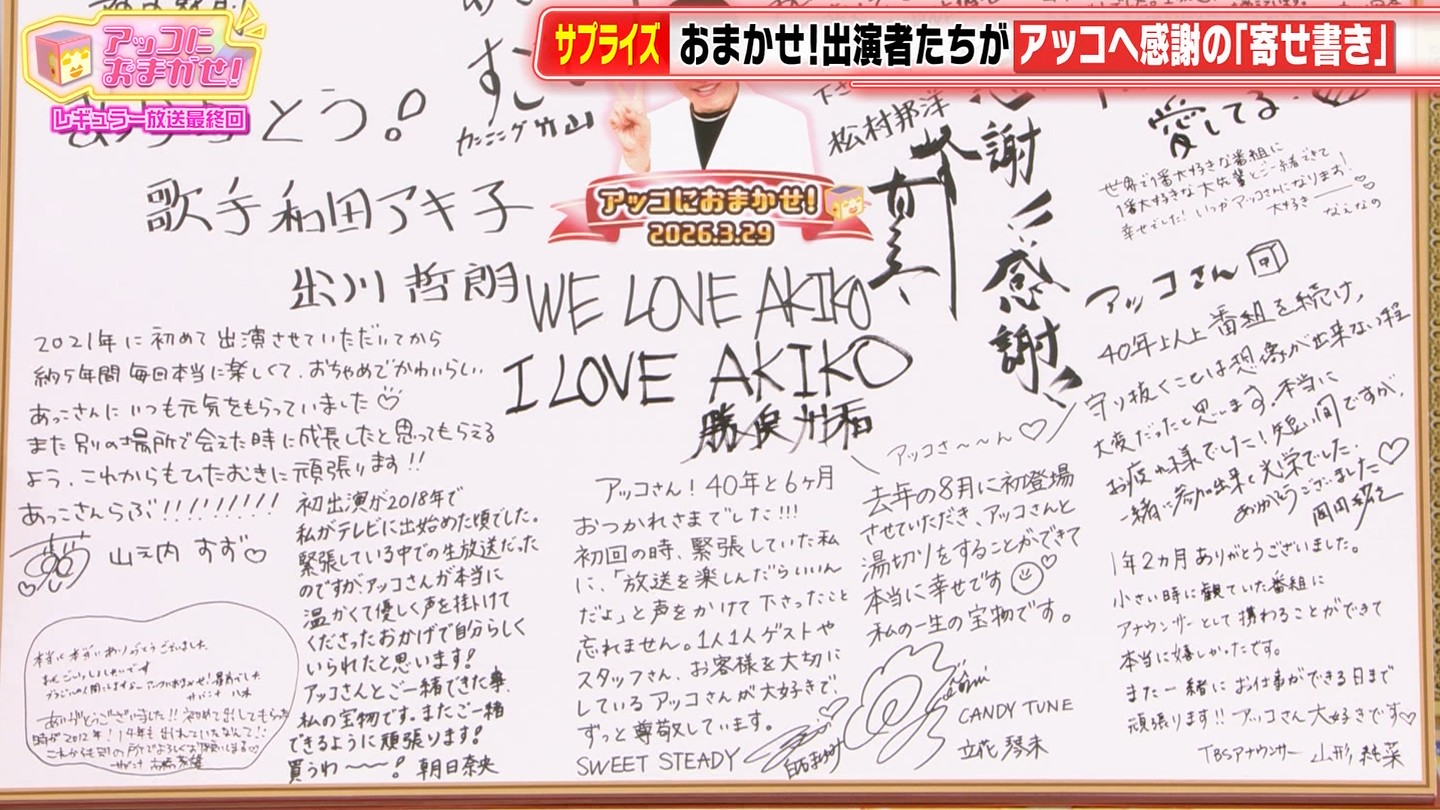 アッコに
おまかせ!
レギュラー放送最終回
サプライズ
おまかせ!出演者たちが
アッコへ感謝の「寄せ書き」
カンニング竹山
歌手 和田アキ子
出川 哲朗
アッコにおまかせ!
2026.3.29
松村邦洋
感謝!!
感謝!!
愛してる
世界で1番大好きな番組に
1番大好きな大先輩とご一緒できて
幸せでした!いつかアッコさんになります!
大好き
なえなの
WE LOVE AKIKO
I LOVE AKIKO
勝俣州和
2021年に初めて出演させていただいてから
約5年間毎回本当に楽しくて、おちゃめでかわいらしい
あっこさんにいつも元気をもらっていました♡
また別の場所で会えた時に成長したと思ってもらえる
よう、これからもひたむきに頑張ります!!
あっこさんらぶ!!!!!!!!!
山之内すず♡
初出演が2018年で
私がテレビに出始めた頃でした。
緊張している中での生放送だった
のですが、アッコさんが本当に
温かくて優しく声を掛けて
くださったおかげで自分らしく
いられたと思います!
アッコさんとご一緒できた事、
私の宝物です。またご一緒
できるように頑張ります!
買うわ〜〜!
朝日奈央
本当に本当にありがとうございました。
ありがとうございました!!初めて出してもらった
時が2012年!14年も出れていたなんて!
アッコさん!40年と6ヶ月
おつかれさまでした!!!
初回の時、緊張していた私
に、「放送を楽しんだらいいん
だよ」と声をかけて下さったこと
忘れません。1人1人ゲストや
スタッフさん、お客様を大切に
しているアッコさんが大好きで、
ずっと尊敬しています。
SWEET STEADY
アッコさ〜〜ん♡
去年の8月に初登場
させていただき、アッコさんと
湯切りをすることができて
本当に幸せです
私の一生の宝物です。
CANDY TUNE
立花 琴未
アッコさん
40年以上番組を続け、
守り抜くことは想像が出来ない程
大変だったと思います。本当に
お疲れ様でした!短い間ですが、
一緒に参加出来て光栄でした。
ありがとうございました♡
1年2ヵ月ありがとうございました。
小さい時に観ていた番組に
アナウンサーとして携わることができて
本当に嬉しかったです。
また一緒にお仕事ができる日まで
頑張ります!!アッコさん大好きです♡
TBSアナウンサー 山形純菜